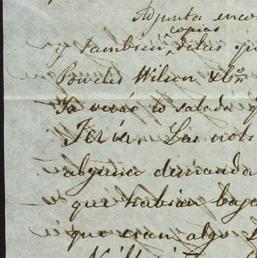 Adjunta enco
copias
y tambien, de las qu
Powles Wilson
Ya veré lo salada q
Feria. Las not
alguna demanda
que habian baja
que eran algo